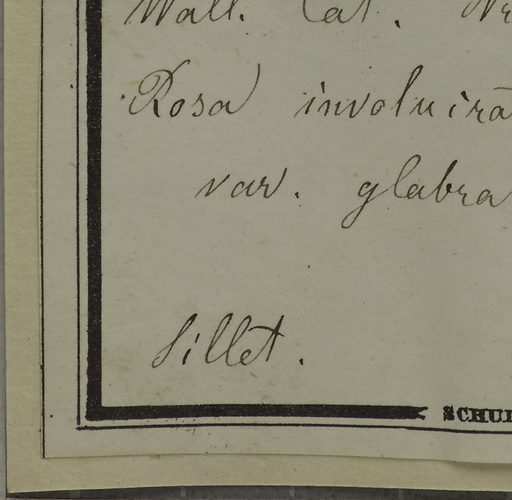 Wall. Cat. Nr
Rosa involucra
var. glabra
Sillet.
SCHUL